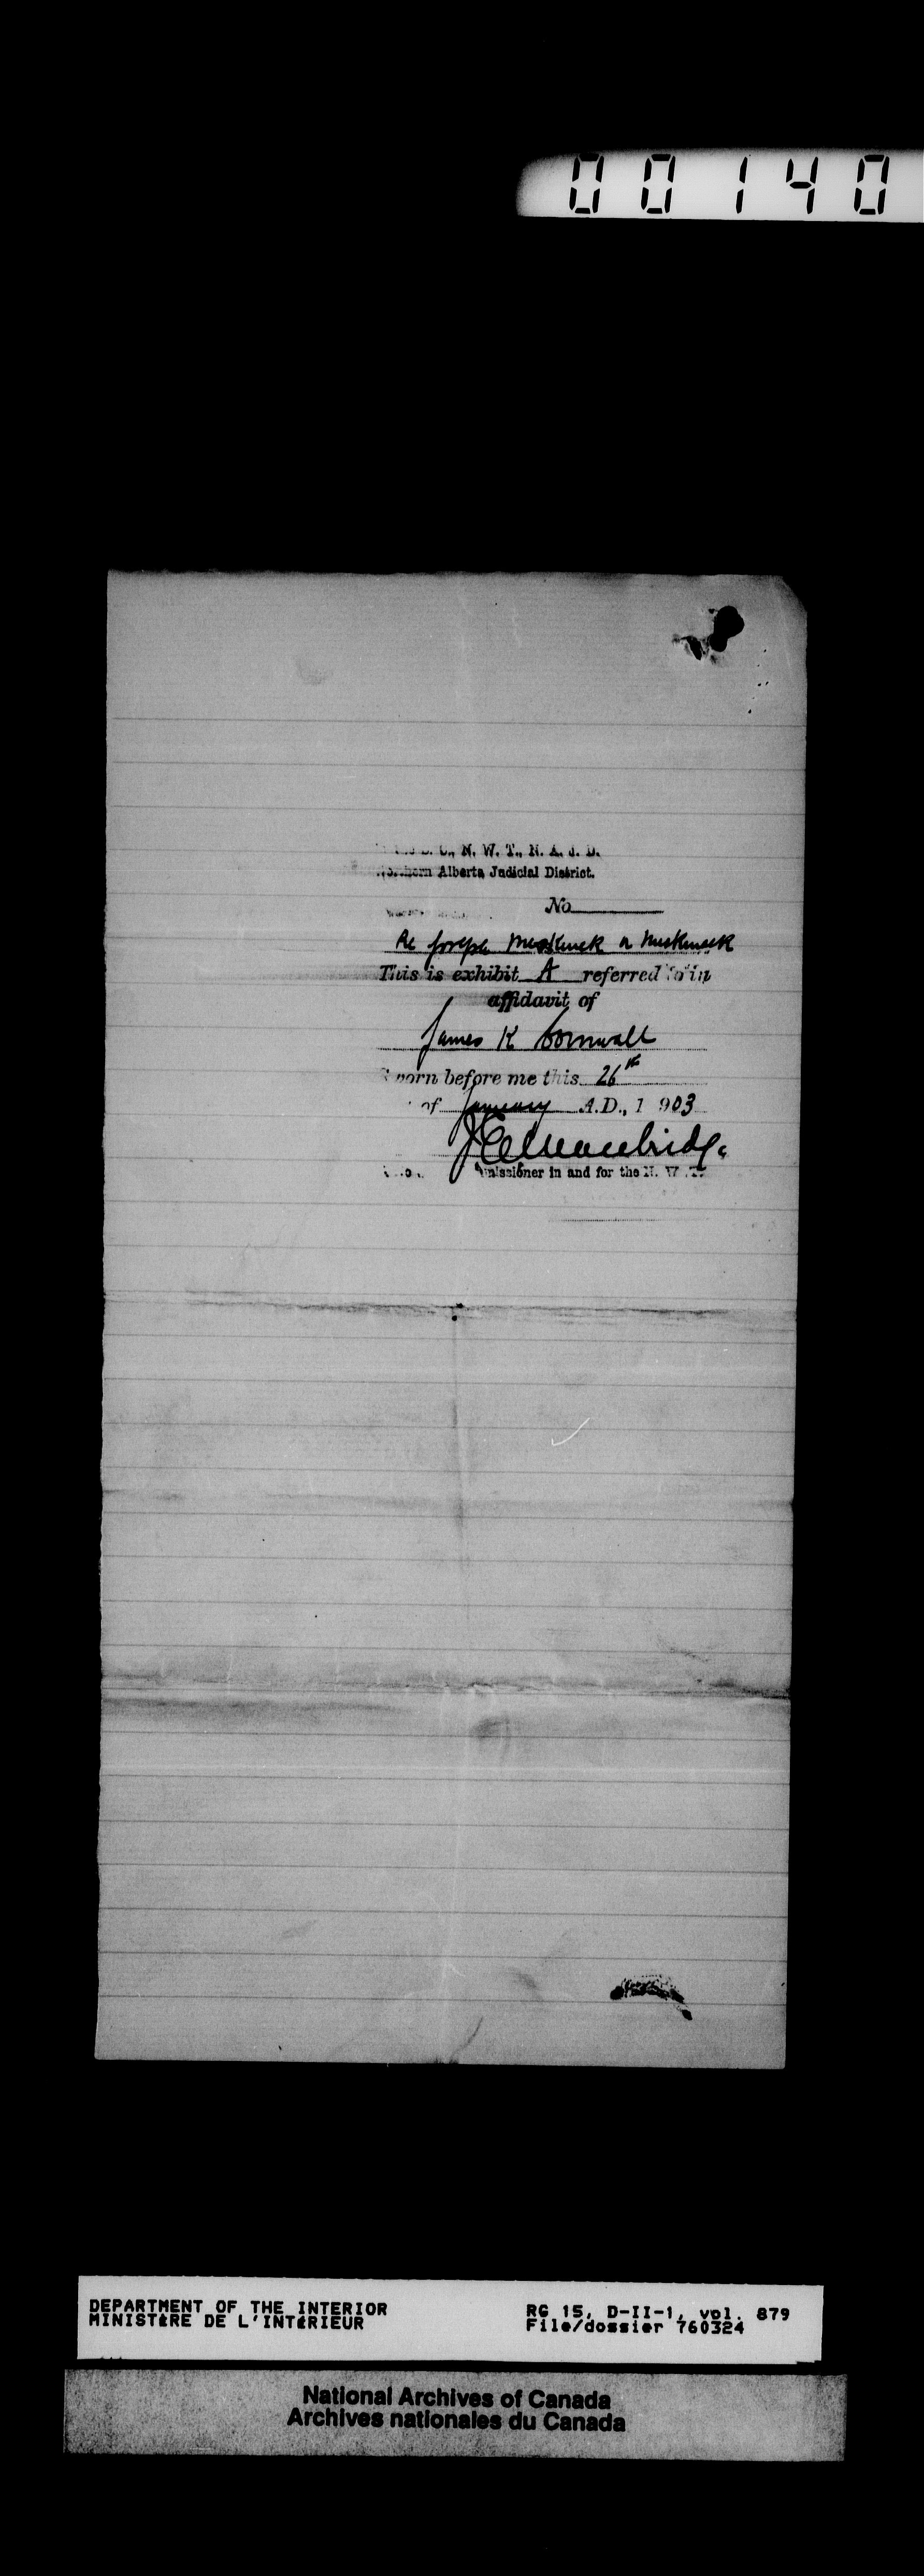 00140
S. C., N. W. T., N. A. J. D.
Northern Alberta Judicial District.
No
Re Joseph Muskwack or Muskwack
This is exhibit A referred to in
affidavit of
James K Cornwall
Sworn before me this 26th
of January A.D., 1903
missioner in and for the N. W. T.
DEPARTMENT OF THE INTERIOR
MINISTÈRE DE L'INTÉRIEUR
RG 15, D-II-1, vol. 879
File/dossier 760324
National Archives of Canada
Archives nationales du Canada